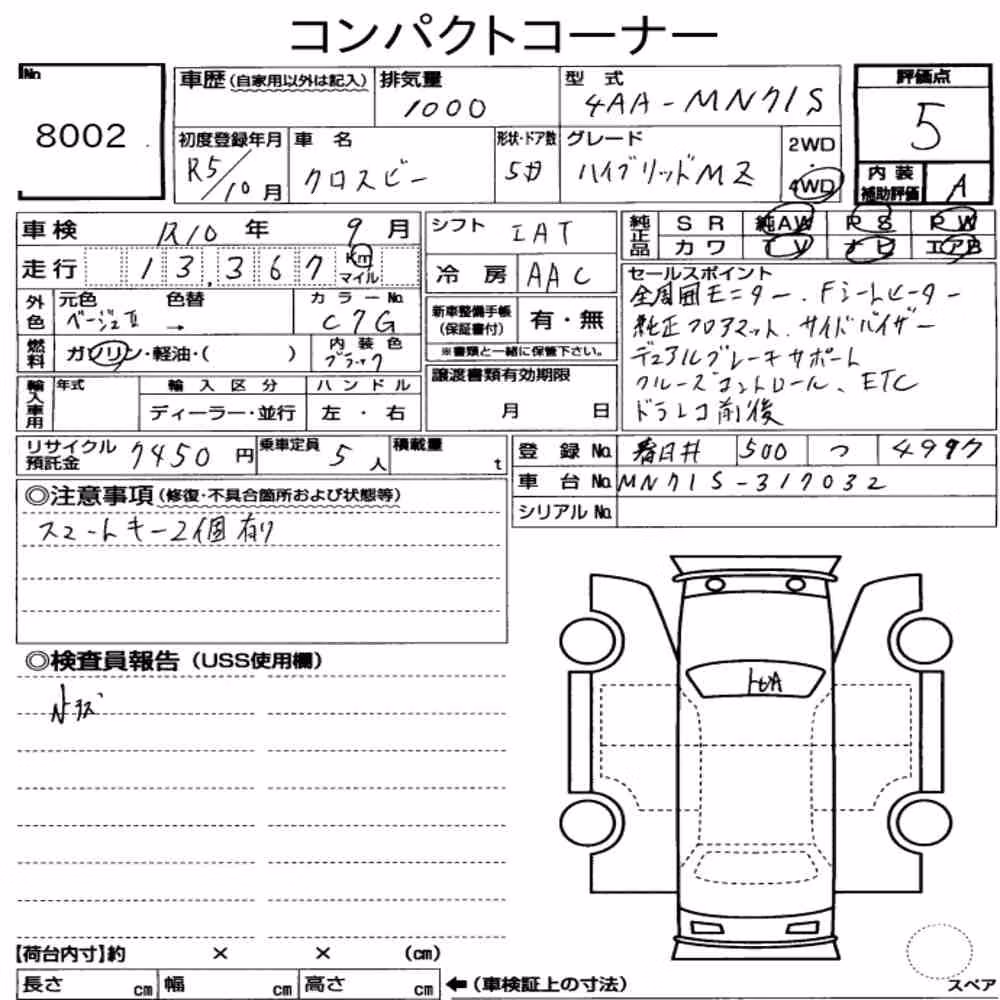 コンパクトコーナー
No. 8002
車歴 (自家用以外は記入)
排気量 1000
型式 4AA-MN71S
評価点 5
初度登録年月 R5/10月
車名 クロスビー
形状・ドア数 5D
グレード ハイブリッドMZ
2WD・4WD
内装補助評価 A
車検 R10年 9月
走行 13,367 Km マイル
シフト IAT
冷房 AAC
純正品 SR 純AW PS PW
カワ TV ナビ エアB
外色 元色 ベージュⅡ 色替 →
カラーNo. C7G
燃料 ガソリン・軽油・( )
内装色 ブラック
新車整備手帳(保証書付) 有・無
※書類と一緒に保管下さい。
セールスポイント
全周囲モニター、Fシートヒーター
純正フロアマット、サイドバイザー
デュアルブレーキサポート
クルーズコントロール、ETC
ドラレコ前後
輸入車用 年式 輸入区分 ハンドル
ディーラー・並行 左・右
譲渡書類有効期限
月 日
リサイクル預託金 7450円
乗車定員 5人
積載量 t
登録No. 春日井 500 つ 4997
車台No. MN71S-317032
シリアルNo.
◎注意事項(修復・不具合箇所および状態等)
スマートキー2個有り
◎検査員報告(USS使用欄)
トビA
【荷台内寸】約 × × (cm)
長さ cm 幅 cm 高さ cm ←(車検証上の寸法)
スペア